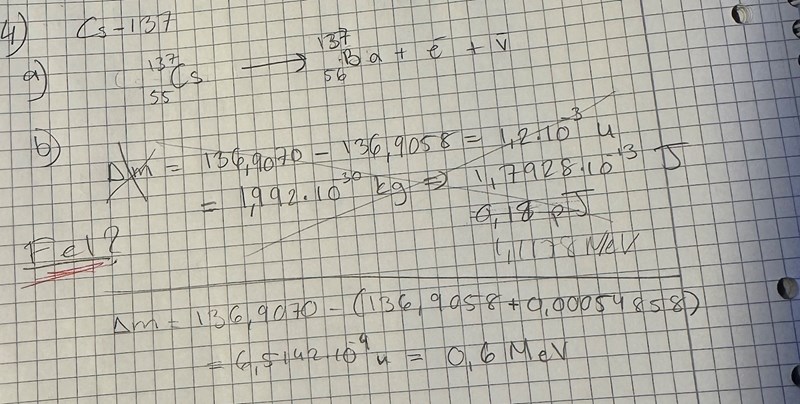 4) Cs-137
a) ¹³⁷₅₅Cs ⟶ ¹³⁷₅₆Ba + e⁻ + v̄
b) Δm = 136,9070 - 136,9058 = 1,2·10⁻³ u
= 1,992·10³⁰ kg ⇒ 1,7928·10⁻¹³ J
0,18 pJ
1,1178 MeV
Fel?
Δm = 136,9070 - (136,9058 + 0,00054858)
= 6,5142·10⁻⁴ u = 0,6 MeV